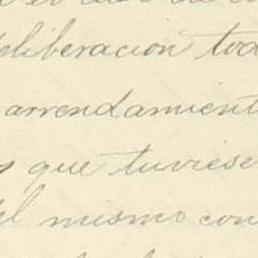 deliberacion tod
arrendamient
s que tuviese
el mismo con